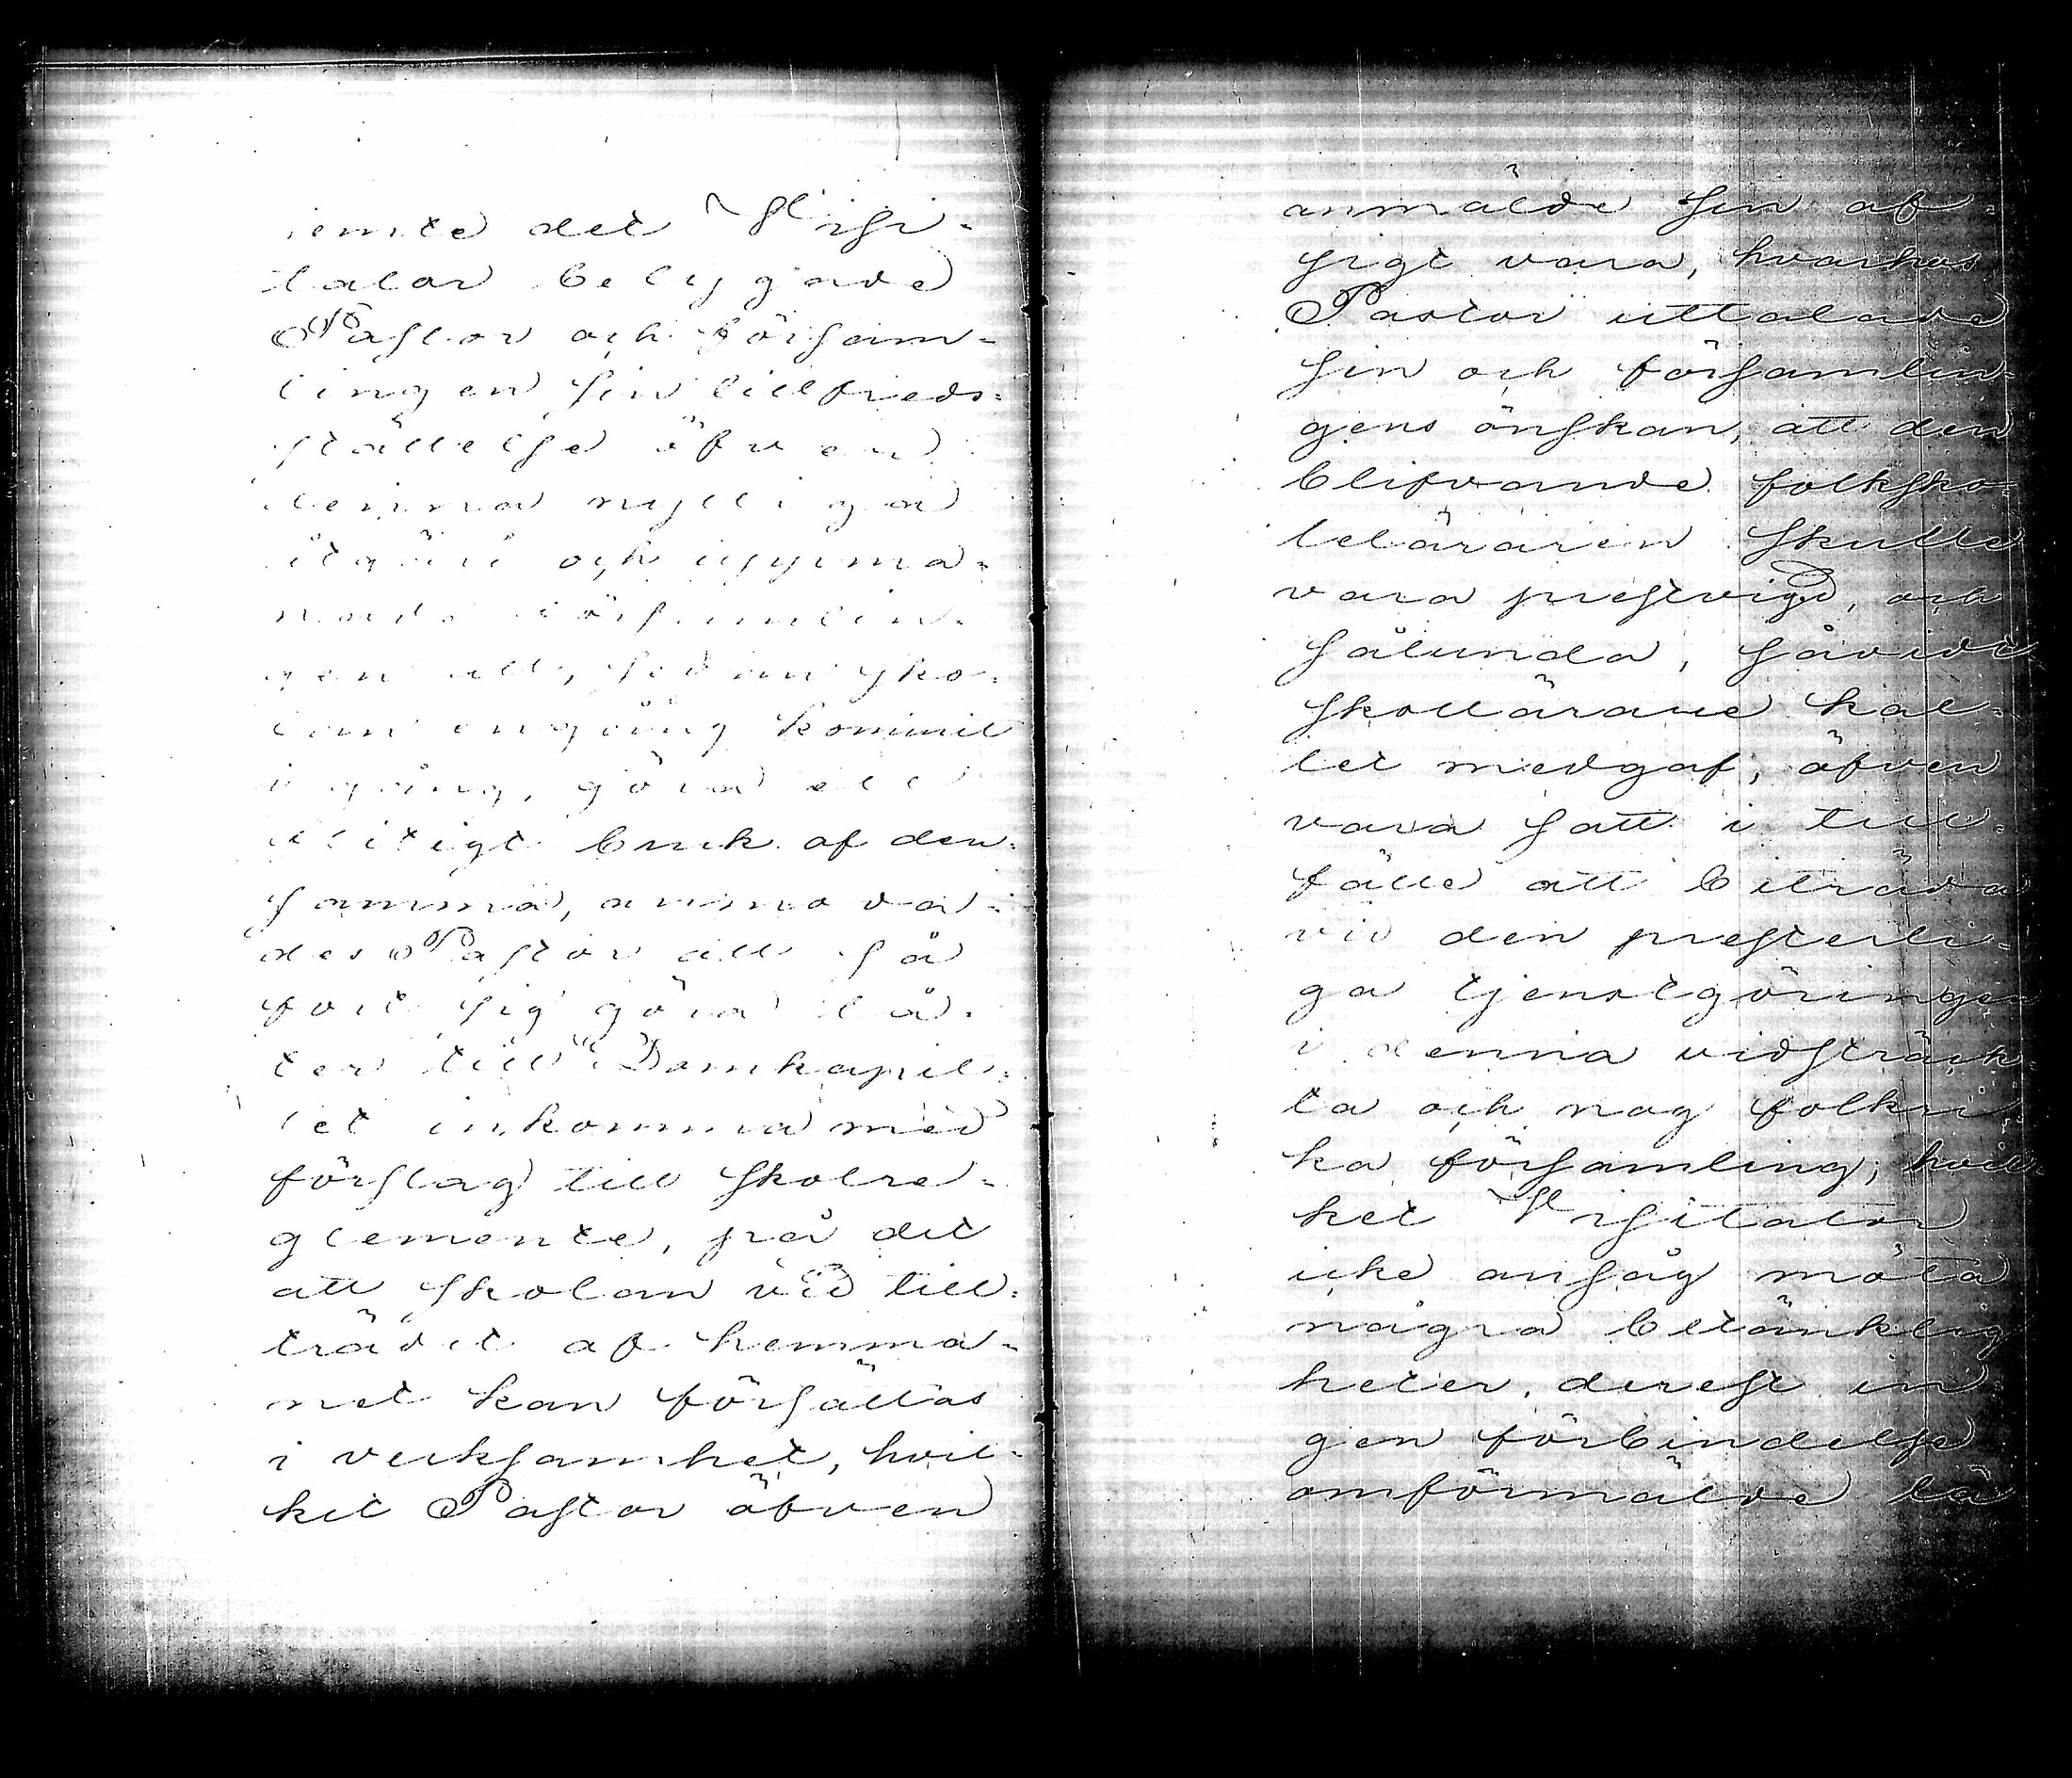 jemte det Visi-
tator betygade
Pastor och försam-
lingen sin tillfreds-
ställelse öfver
denna nyttiga
åtgärd och uppma-
nade församlin-
gen att, sedan sko-
lan engång kommit
i gång, göra ett
flitigt bruk af den-
samma, anmoda-
des Pastor att så
fort sig göra lå-
ter till Domkapit-
let inkomma med
förslag till skolre-
glemente, på det
att skolan vid till-
trädet af hemma-
net kan försättas
i verksamhet, hvil-
ket Pastor äfven
anmälde sin af-
sigt vara, hvarhos
Pastor uttalade
sin och församlin-
gens önskan, att den
blifvande folksko-
leläraren skulle
vara prestvigd, och
sålunda, såvidt
skollärarekal-
let medgaf, äfven
vara satt i till-
fälle att biträda
vid den presterli-
ga tjenstgöringen
i denna vidsträck-
ta och nog folkri-
ka församling; hvil-
ket Visitator
icke ansåg möta
några betänklig
heter, derest in-
gen förbindelse
omförmälde lä